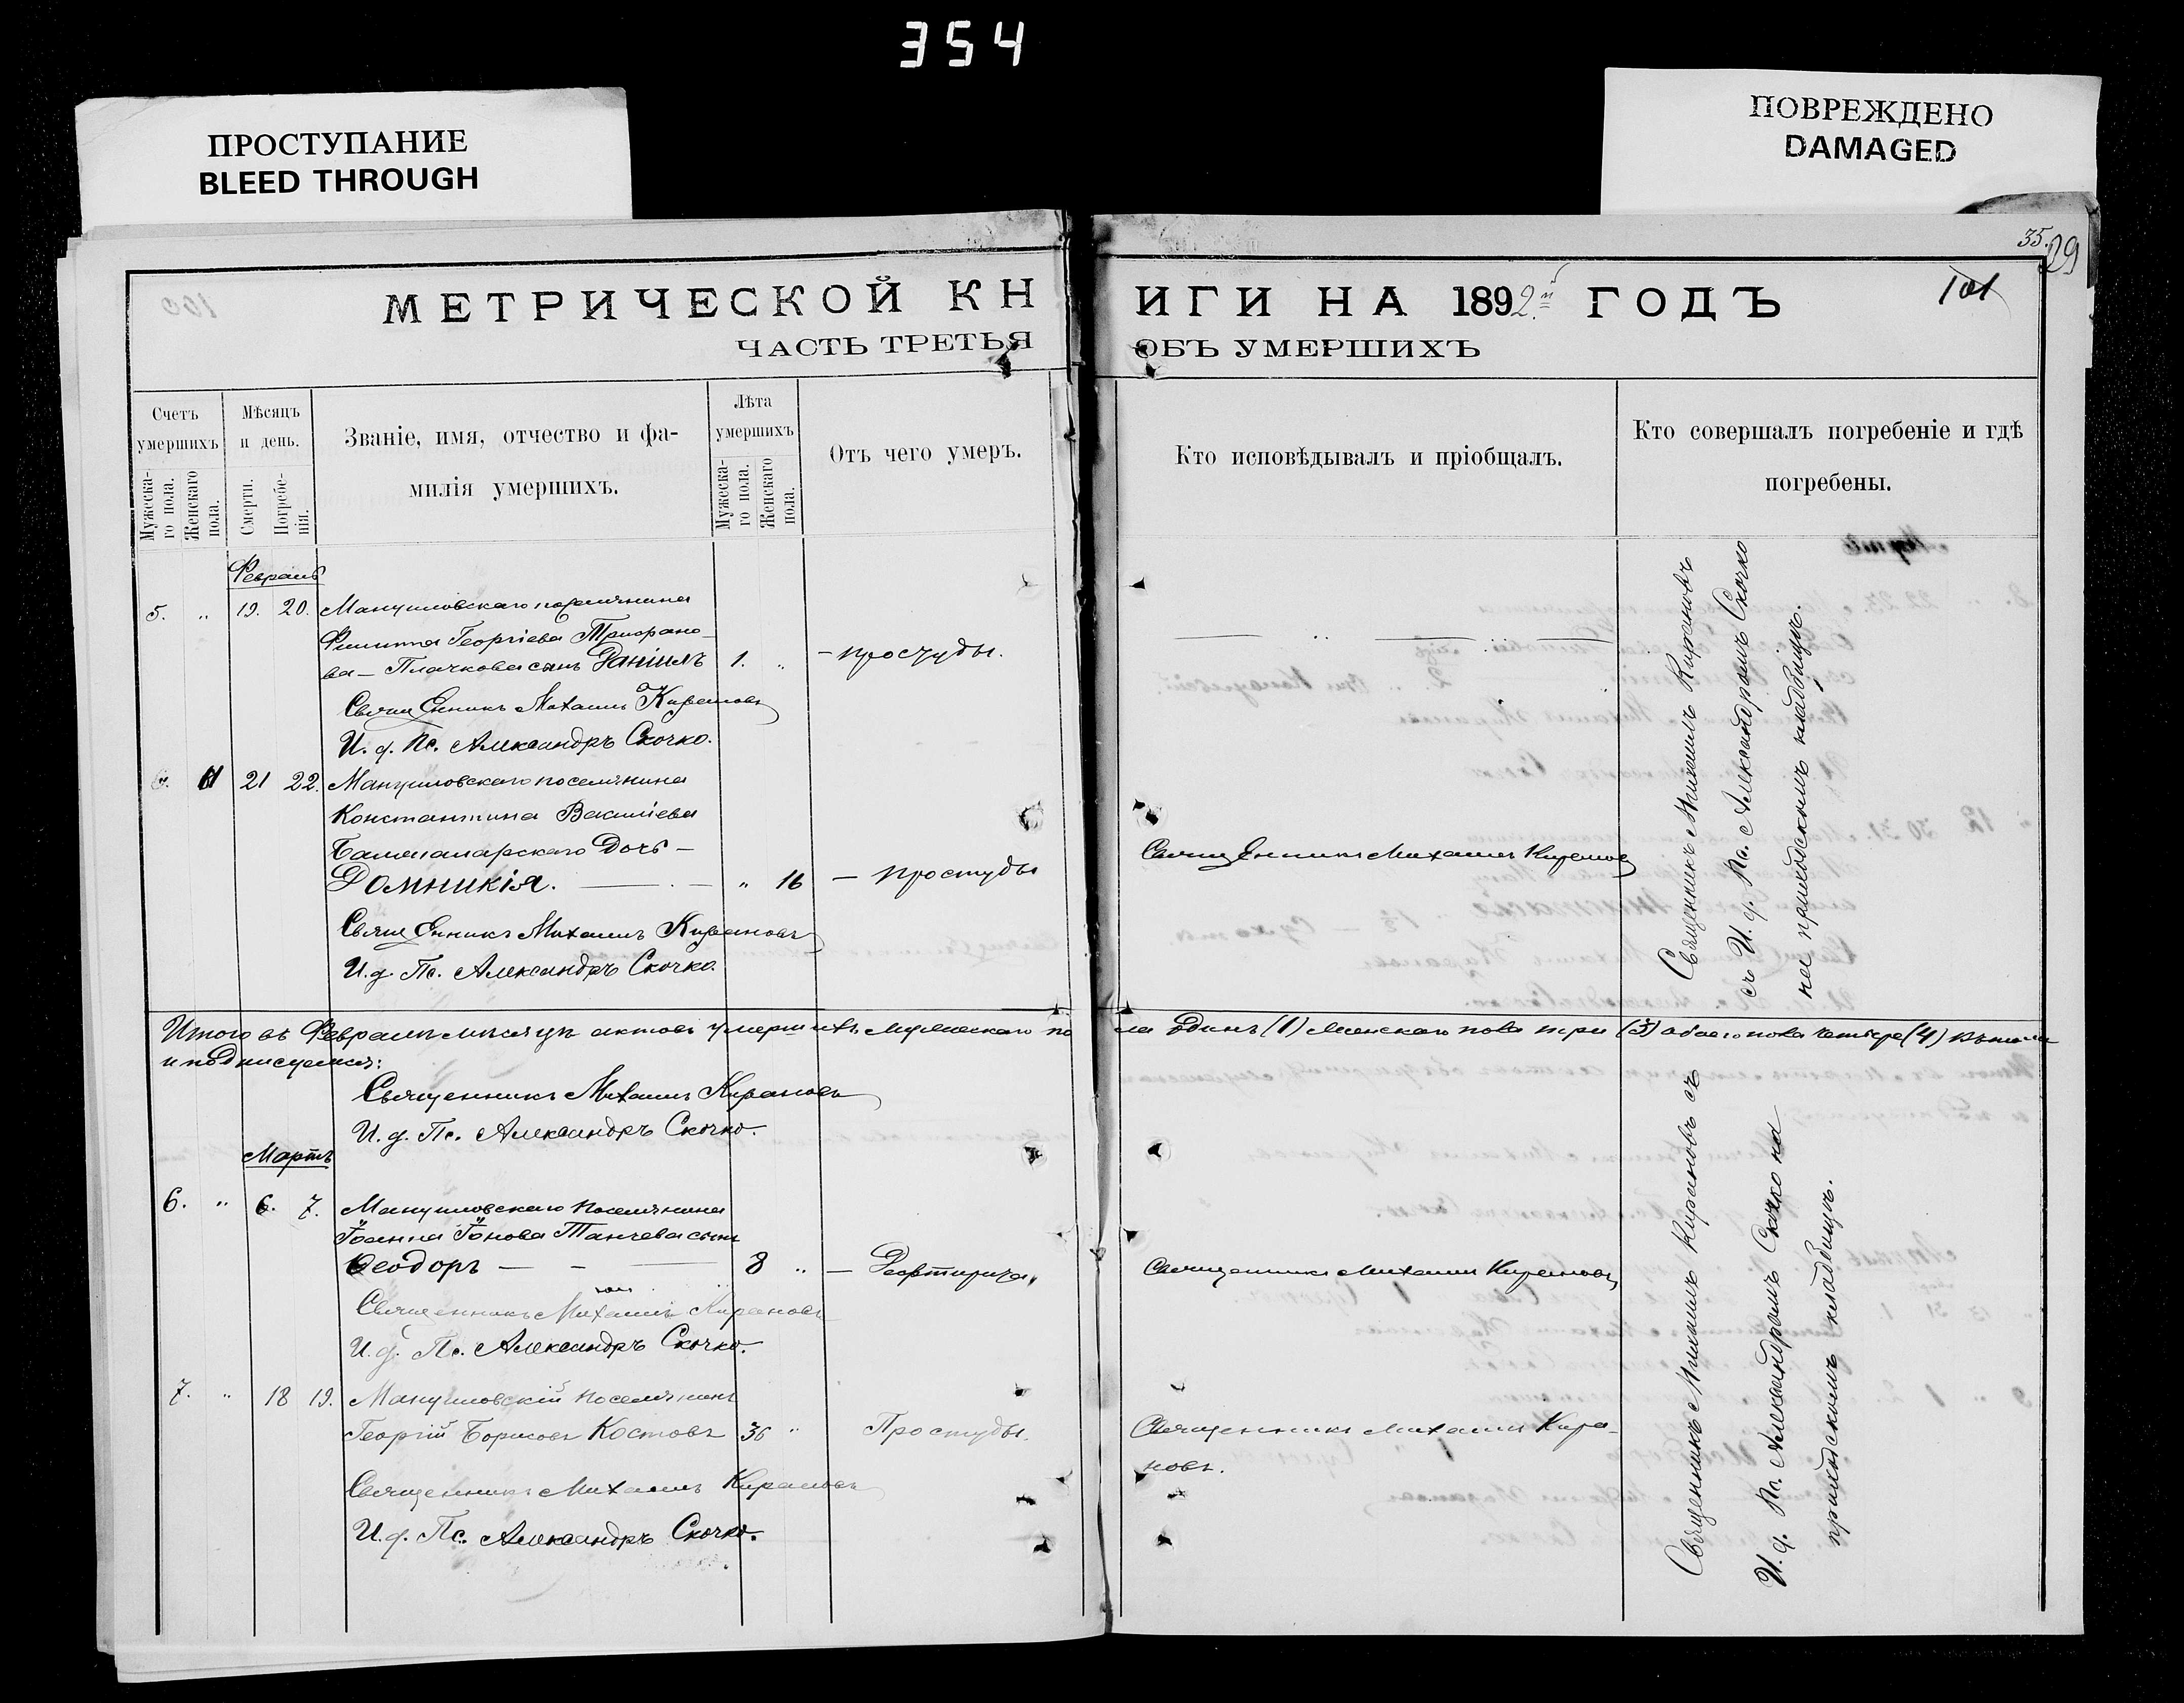 354
ПРОСТУПАНИЕ
BLEED THROUGH
ПОВРЕЖДЕНО
DAMAGED
35.
29
101
100
МЕТРИЧЕСКОЙ КН
ИГИ НА 1892й ГОДЪ
ЧАСТЬ ТРЕТЬЯ
ОБЪ УМЕРШИХЪ
Счетъ умершихъ
Мужеска-го пола.
Женскаго пола.
Мѣсяцъ и день.
Смерти.
Погребе-нія.
Званіе, имя, отчество и фа-
милія умершихъ.
Лѣта умершихъ
Мужеска-го пола.
Женскаго пола.
Отъ чего умеръ.
Кто исповѣдывалъ и пріобщалъ.
Кто совершалъ погребеніе и гдѣ
погребены.
Февраль
5. „ 19. 20. Мануиловскаго поселянина
Филиппа Георгіева Трифоно-
ва – Плачкова сынъ Даніилъ 1. „ – простуды.
Священникъ Михаилъ Кирановъ
И. д. Пс. Александръ Скочко.
11 21 22. Мануиловскаго поселянина
Константина Василіева
дочь –
Домникія. — „ 16 – простуды
Священникъ Михаилъ Кирановъ
Священникъ Михаилъ Кирановъ
И. д. Пс. Александръ Скочко.
Священникъ Михаилъ Кирановъ
съ И. д. Пс. Александромъ Скочко
на приходскомъ кладбищѣ.
Итого въ Февралѣ мѣсяцѣ актовъ умершихъ мужескаго по
ла одинъ (1) женскаго пола три (3) обаего пола четыре (4)
и подписуемся:
Священникъ Михаилъ Кирановъ
И. д. Пс. Александръ Скочко.
Мартъ
6. „ 6. 7. Мануиловскаго поселянина
Іоанна Іонова Танчева сынъ
Ѳеодоръ — 8 „ – Дефтирита,
Священникъ Михаилъ Кирановъ
Священникъ Михаилъ Кирановъ
И. д. Пс. Александръ Скочко.
7. „ 18 19. Мануиловскій поселянинъ
Георгій Борисовъ Костовъ 36 „ Простуды.
Священникъ Михаилъ Кира-
новъ.
Священникъ Михаилъ Кирановъ
И. д. Пс. Александръ Скочко.
Священникъ Михаилъ Кирановъ съ
И. д. Пс. Александромъ Скочко на
приходскомъ кладбищѣ.